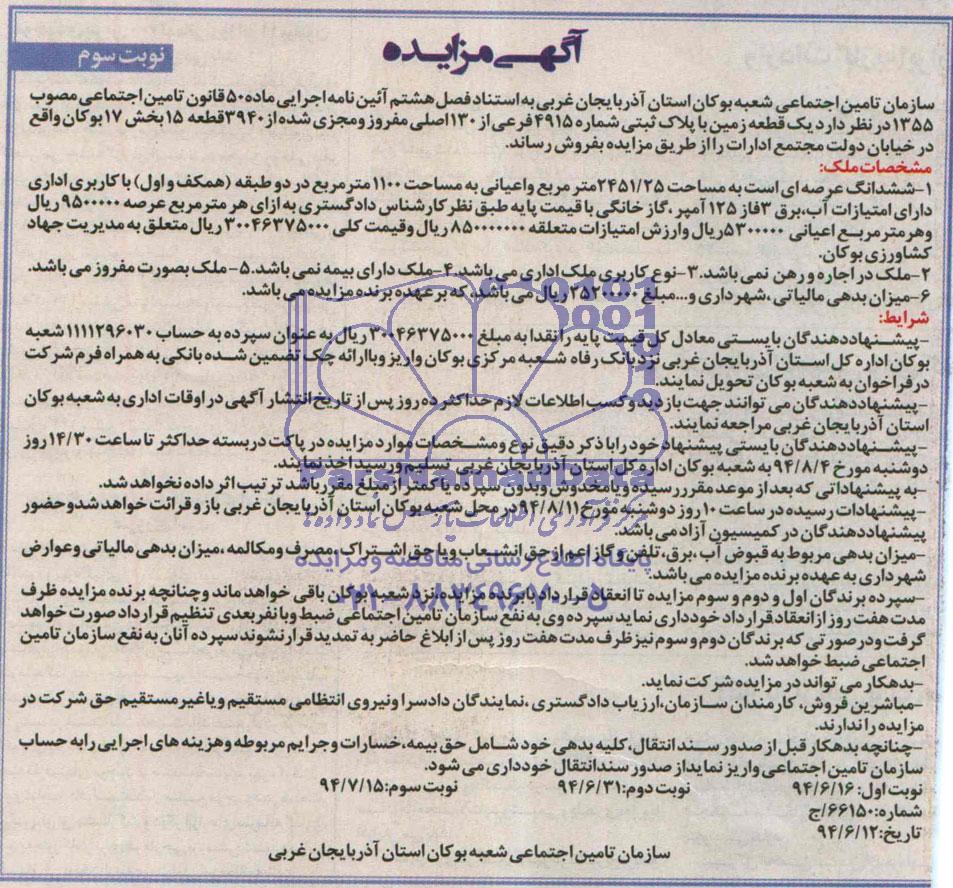 آگهی مزایده
نوبت سوم
سازمان تامین اجتماعی شعبه بوکان استان آذربایجان غربی به استناد فصل هشتم آئین نامه اجرایی ماده ۵۰ قانون تامین اجتماعی مصوب
۱۳۵۵ در نظر دارد یک قطعه زمین با پلاک ثبتی شماره ۴۹۱۵ فرعی از ۱۳۰ اصلی مفروز و مجزی شده از ۳۹۴۰ قطعه ۱۵ بخش ۱۷ بوکان واقع
در خیابان دولت مجتمع ادارات را از طریق مزایده بفروش رساند.
مشخصات ملک:
۱-ششدانگ عرصه ای است به مساحت ۲۴۵۱/۲۵ متر مربع واعیانی به مساحت ۱۱۰۰ مترمربع در دو طبقه (همکف و اول) با کاربری اداری
دارای امتیازات آب،برق ۳فاز ۱۲۵ آمپر ،گاز خانگی با قیمت پایه طبق نظر کارشناس دادگستری به ازای هر مترمربع عرصه ۹۵۰۰۰۰۰ ریال
وهر متر مربع اعیانی ۵۳۰۰۰۰۰ ریال وارزش امتیازات متعلقه ۸۵۰۰۰۰۰۰۰ ریال وقیمت کلی ۳۰۰۴۶۳۷۵۰۰۰ ریال متعلق به مدیریت جهاد
کشاورزی بوکان.
۲-ملک در اجاره و رهن نمی باشد.۳-نوع کاربری ملک اداری می باشد.۴-ملک دارای بیمه نمی باشد.۵-ملک بصورت مفروز می باشد.
۶-میزان بدهی مالیاتی ،شهرداری و...مبلغ ۲۵۲۰۰۰۰۰ ریال می باشد. که بر عهده برنده مزایده می باشد.
شرایط:
-پیشنهاددهندگان بایستی معادل کل قیمت پایه را نقدا به مبلغ ۳۰۰۴۶۳۷۵۰۰۰ ریال به عنوان سپرده به حساب ۱۱۱۱۲۹۶۰۳۰ شعبه
بوکان اداره کل استان آذربایجان غربی نزد بانک رفاه شعبه مرکزی بوکان واریز وباارائه چک تضمین شده بانکی به همراه فرم شرکت
در فراخوان به شعبه بوکان تحویل نمایند.
-پیشنهاددهندگان می توانند جهت بازدید وکسب اطلاعات لازم حداکثر ده روز پس از تاریخ انتشار آگهی در اوقات اداری به شعبه بوکان
استان آذربایجان غربی مراجعه نمایند.
-پیشنهاددهندگان بایستی پیشنهاد خود را با ذکر دقیق نوع و مشخصات موارد مزایده در پاکت دربسته حداکثر تا ساعت ۱۴/۳۰ روز
دوشنبه مورخ ۹۴/۸/۴ به شعبه بوکان اداره کل استان آذربایجان غربی تسلیم ورسید اخذ نمایند.
-به پیشنهاداتی که بعد از موعد مقرر رسیده ویا مخدوش وبدون سپرده یا کمتر از مبلغ مقرر باشد ترتیب اثر داده نخواهد شد.
-پیشنهادات رسیده در ساعت ۱۰ روز دوشنبه مورخ ۹۴/۸/۱۱ در محل شعبه بوکان استان آذربایجان غربی باز و قرائت خواهد شد و حضور
پیشنهاددهندگان در کمیسیون آزاد می باشد.
-میزان بدهی مربوط به قبوض آب،برق،تلفن و گاز اعم از حق انشعاب ویا حق اشتراک ،مصرف و مکالمه،میزان بدهی مالیاتی وعوارض
شهرداری به عهده برنده مزایده می باشد.
-سپرده برندگان اول و دوم و سوم مزایده تا انعقاد قرارداد بابرنده مزایده،نزد شعبه بوکان باقی خواهد ماند و چنانچه برنده مزایده ظرف
مدت هفت روز از انعقاد قرارداد خودداری نماید سپرده وی به نفع سازمان تامین اجتماعی ضبط وبا نفر بعدی تنظیم قرارداد صورت خواهد
گرفت ودر صورتی که برندگان دوم و سوم نیز ظرف مدت هفت روز پس از ابلاغ حاضر به تمدید قرار نشوند سپرده آنان به نفع سازمان تامین
اجتماعی ضبط خواهد شد.
-بدهکار می تواند در مزایده شرکت نماید.
-مباشرین فروش، کارمندان سازمان،ارزیاب دادگستری ،نمایندگان دادسرا ونیروی انتظامی مستقیم ویاغیر مستقیم حق شرکت در
مزایده را ندارند.
-چنانچه بدهکار قبل از صدور سند انتقال،کلیه بدهی خود شامل حق بیمه،خسارات وجرایم مربوطه وهزینه های اجرایی را به حساب
سازمان تامین اجتماعی واریز نماید از صدور سند انتقال خودداری می شود.
نوبت اول: ۹۴/۶/۱۶ نوبت دوم: ۹۴/۶/۳۱ نوبت سوم: ۹۴/۷/۱۵
شماره: ۶۶۱۵۰/ج
تاریخ: ۹۴/۶/۱۲
سازمان تامین اجتماعی شعبه بوکان استان آذربایجان غربی
ParsNamadData
مرکز فرآوری اطلاعات پارس نماد داده
پایگاه اطلاع رسانی مناقصه و مزایده
۰۲۱-۸۸۳۴۹۶۷۰-۵